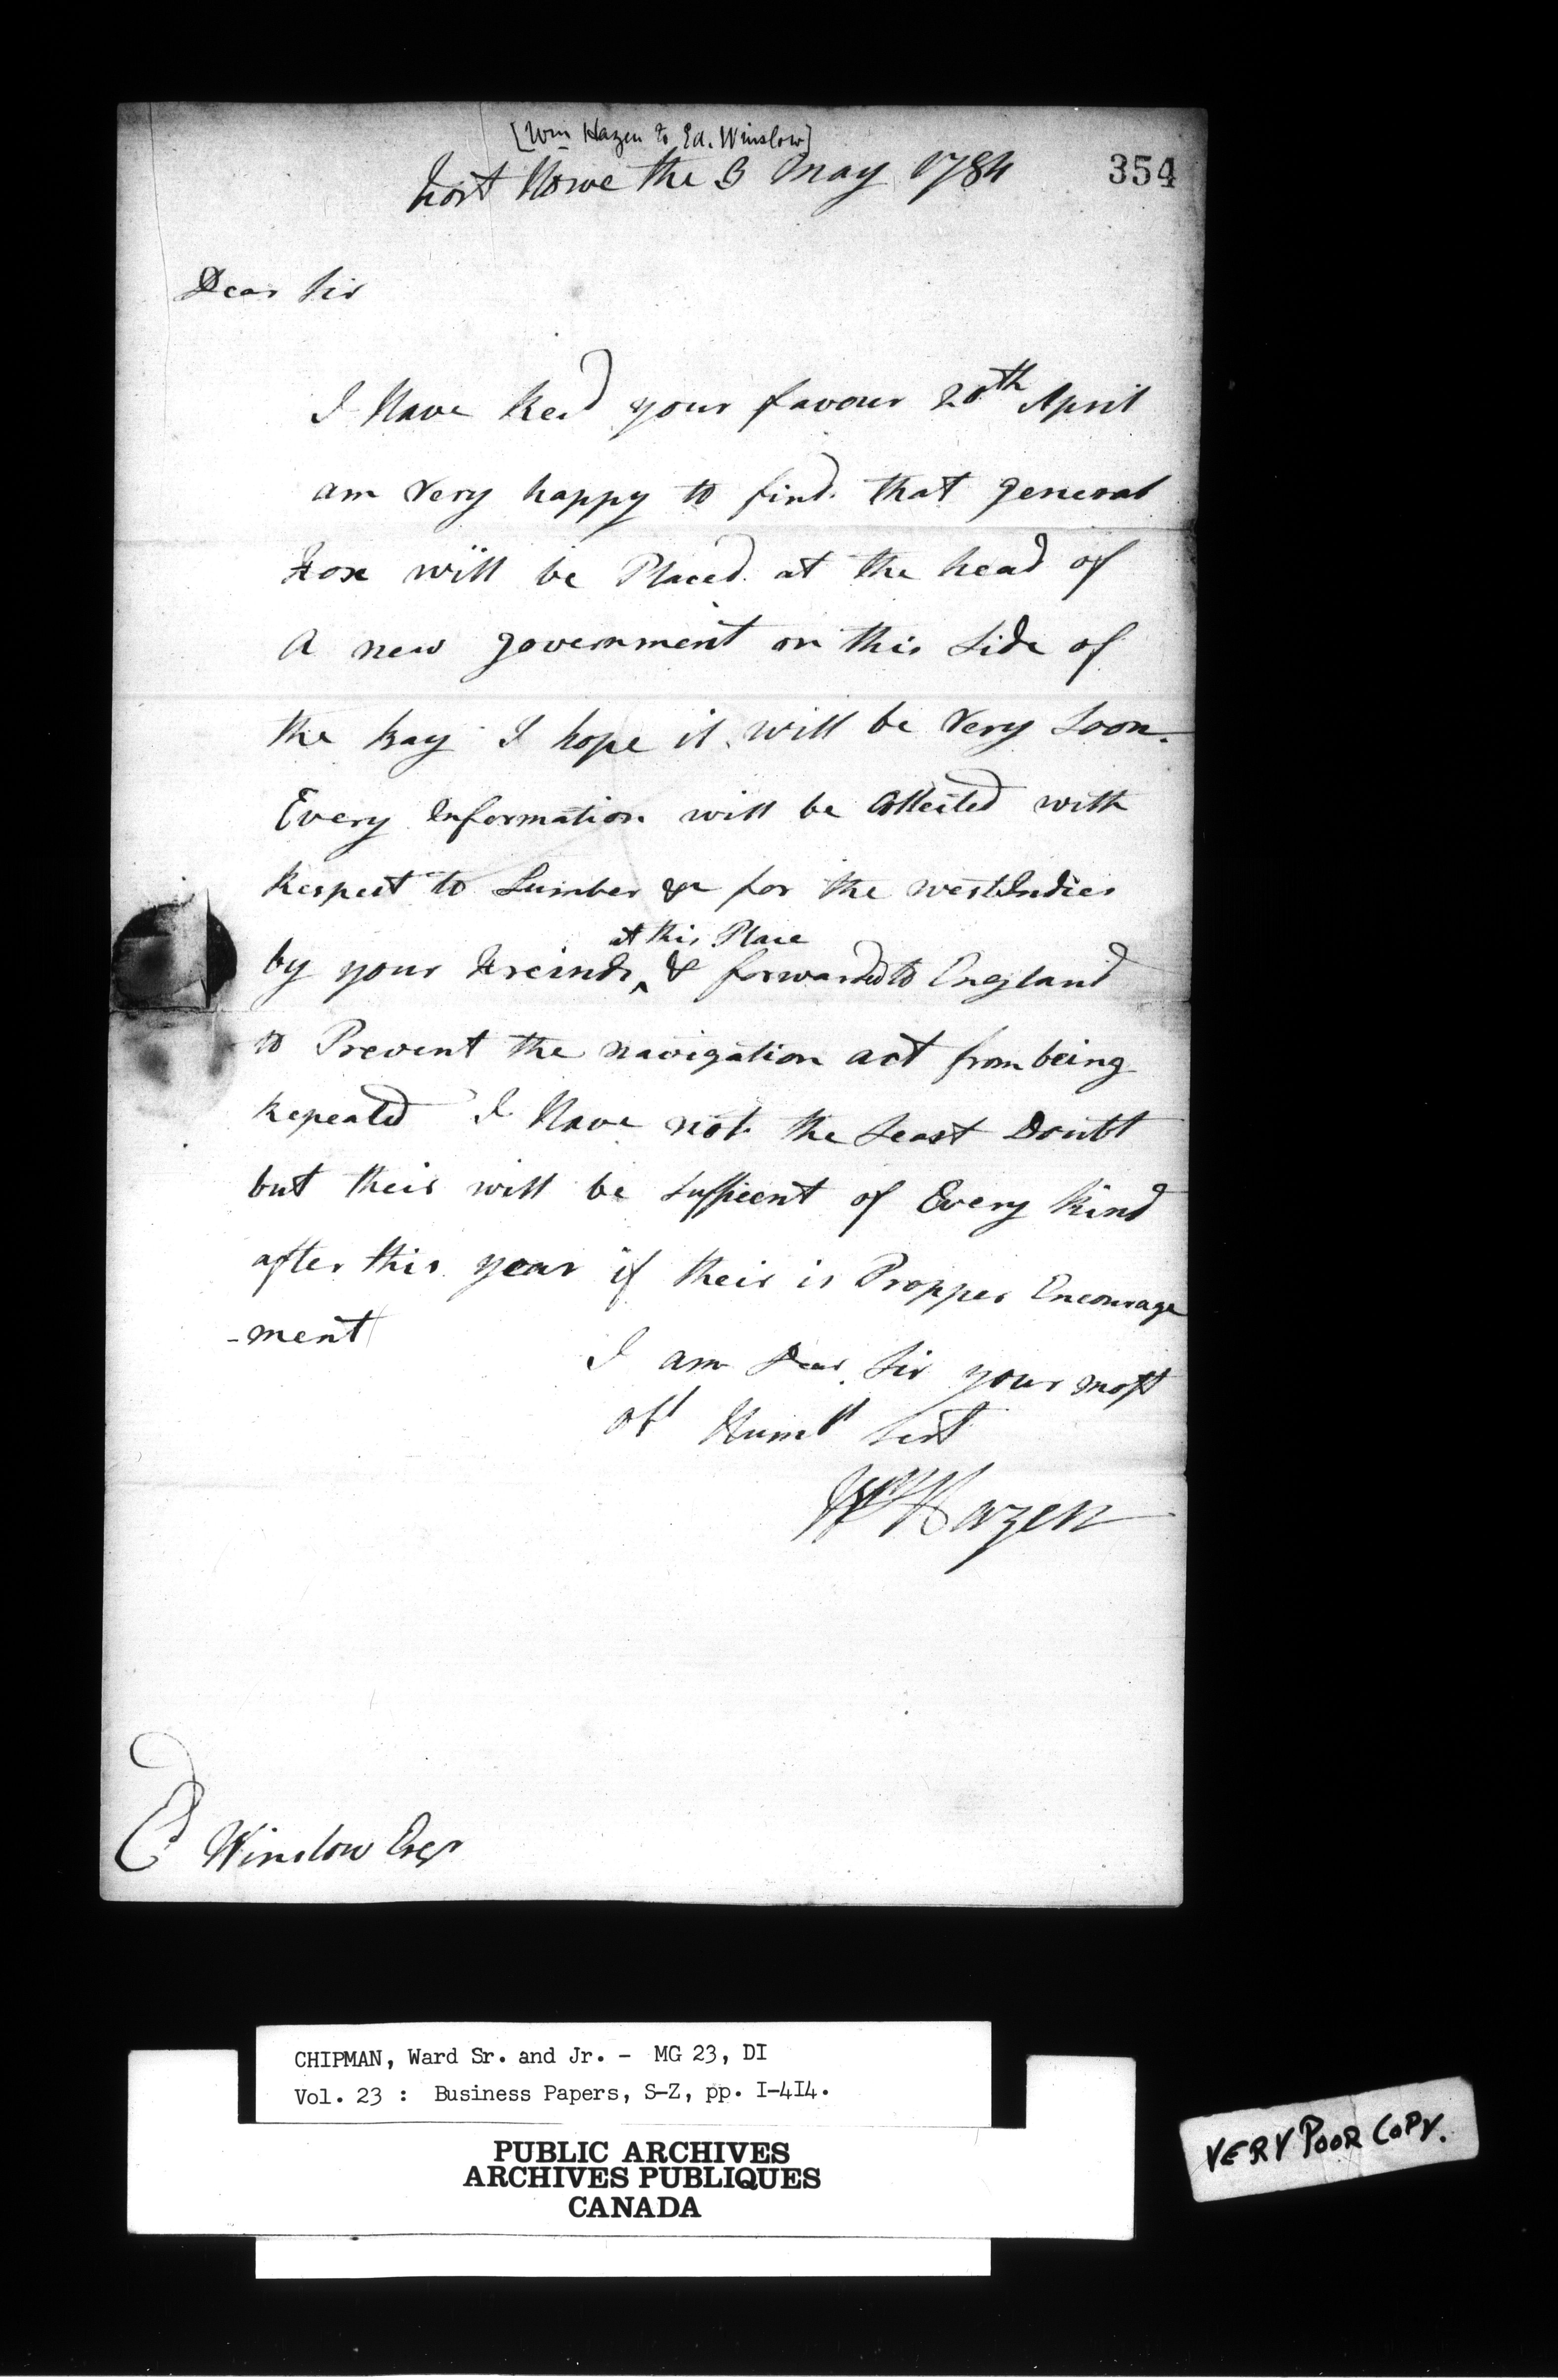 [Wm Hazen to Ed. Winslow]
354
Fort Howe the 3 May 1784
Dear Sir
I Have Recd your favour 20th April
am Very happy to find that general
Fox will be Placed at the head of
A new government on this Side of
the Bay I hope it will be Very Soon.
Every Information will be Collected with
Respect to Lumber &c for the west Indies
at this Place
by your Freinds ^ & forwarded to England
to Prevent the navigation act from being
Repealed I Have not the Least Doubt
but their will be Suffient of Every Kind
after this year if their is Propper Encourage
-ment
I am Dear Sir your most
Obt Humbl Sert
Wm Hazen
Ed Winslow Esqr
CHIPMAN, Ward Sr. and Jr. - MG 23, DI
Vol. 23 : Business Papers, S-Z, pp. I-4I4.
PUBLIC ARCHIVES
ARCHIVES PUBLIQUES
CANADA
VERY POOR COPY.